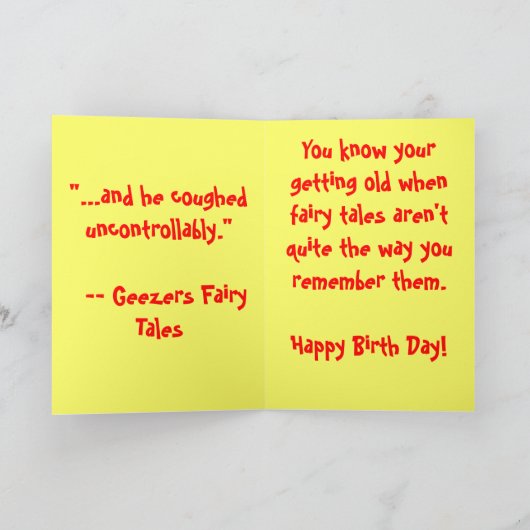 "...and he coughed
uncontrollably."
-- Geezers Fairy
Tales
You know your
getting old when
fairy tales aren't
quite the way you
remember them.
Happy Birth Day!